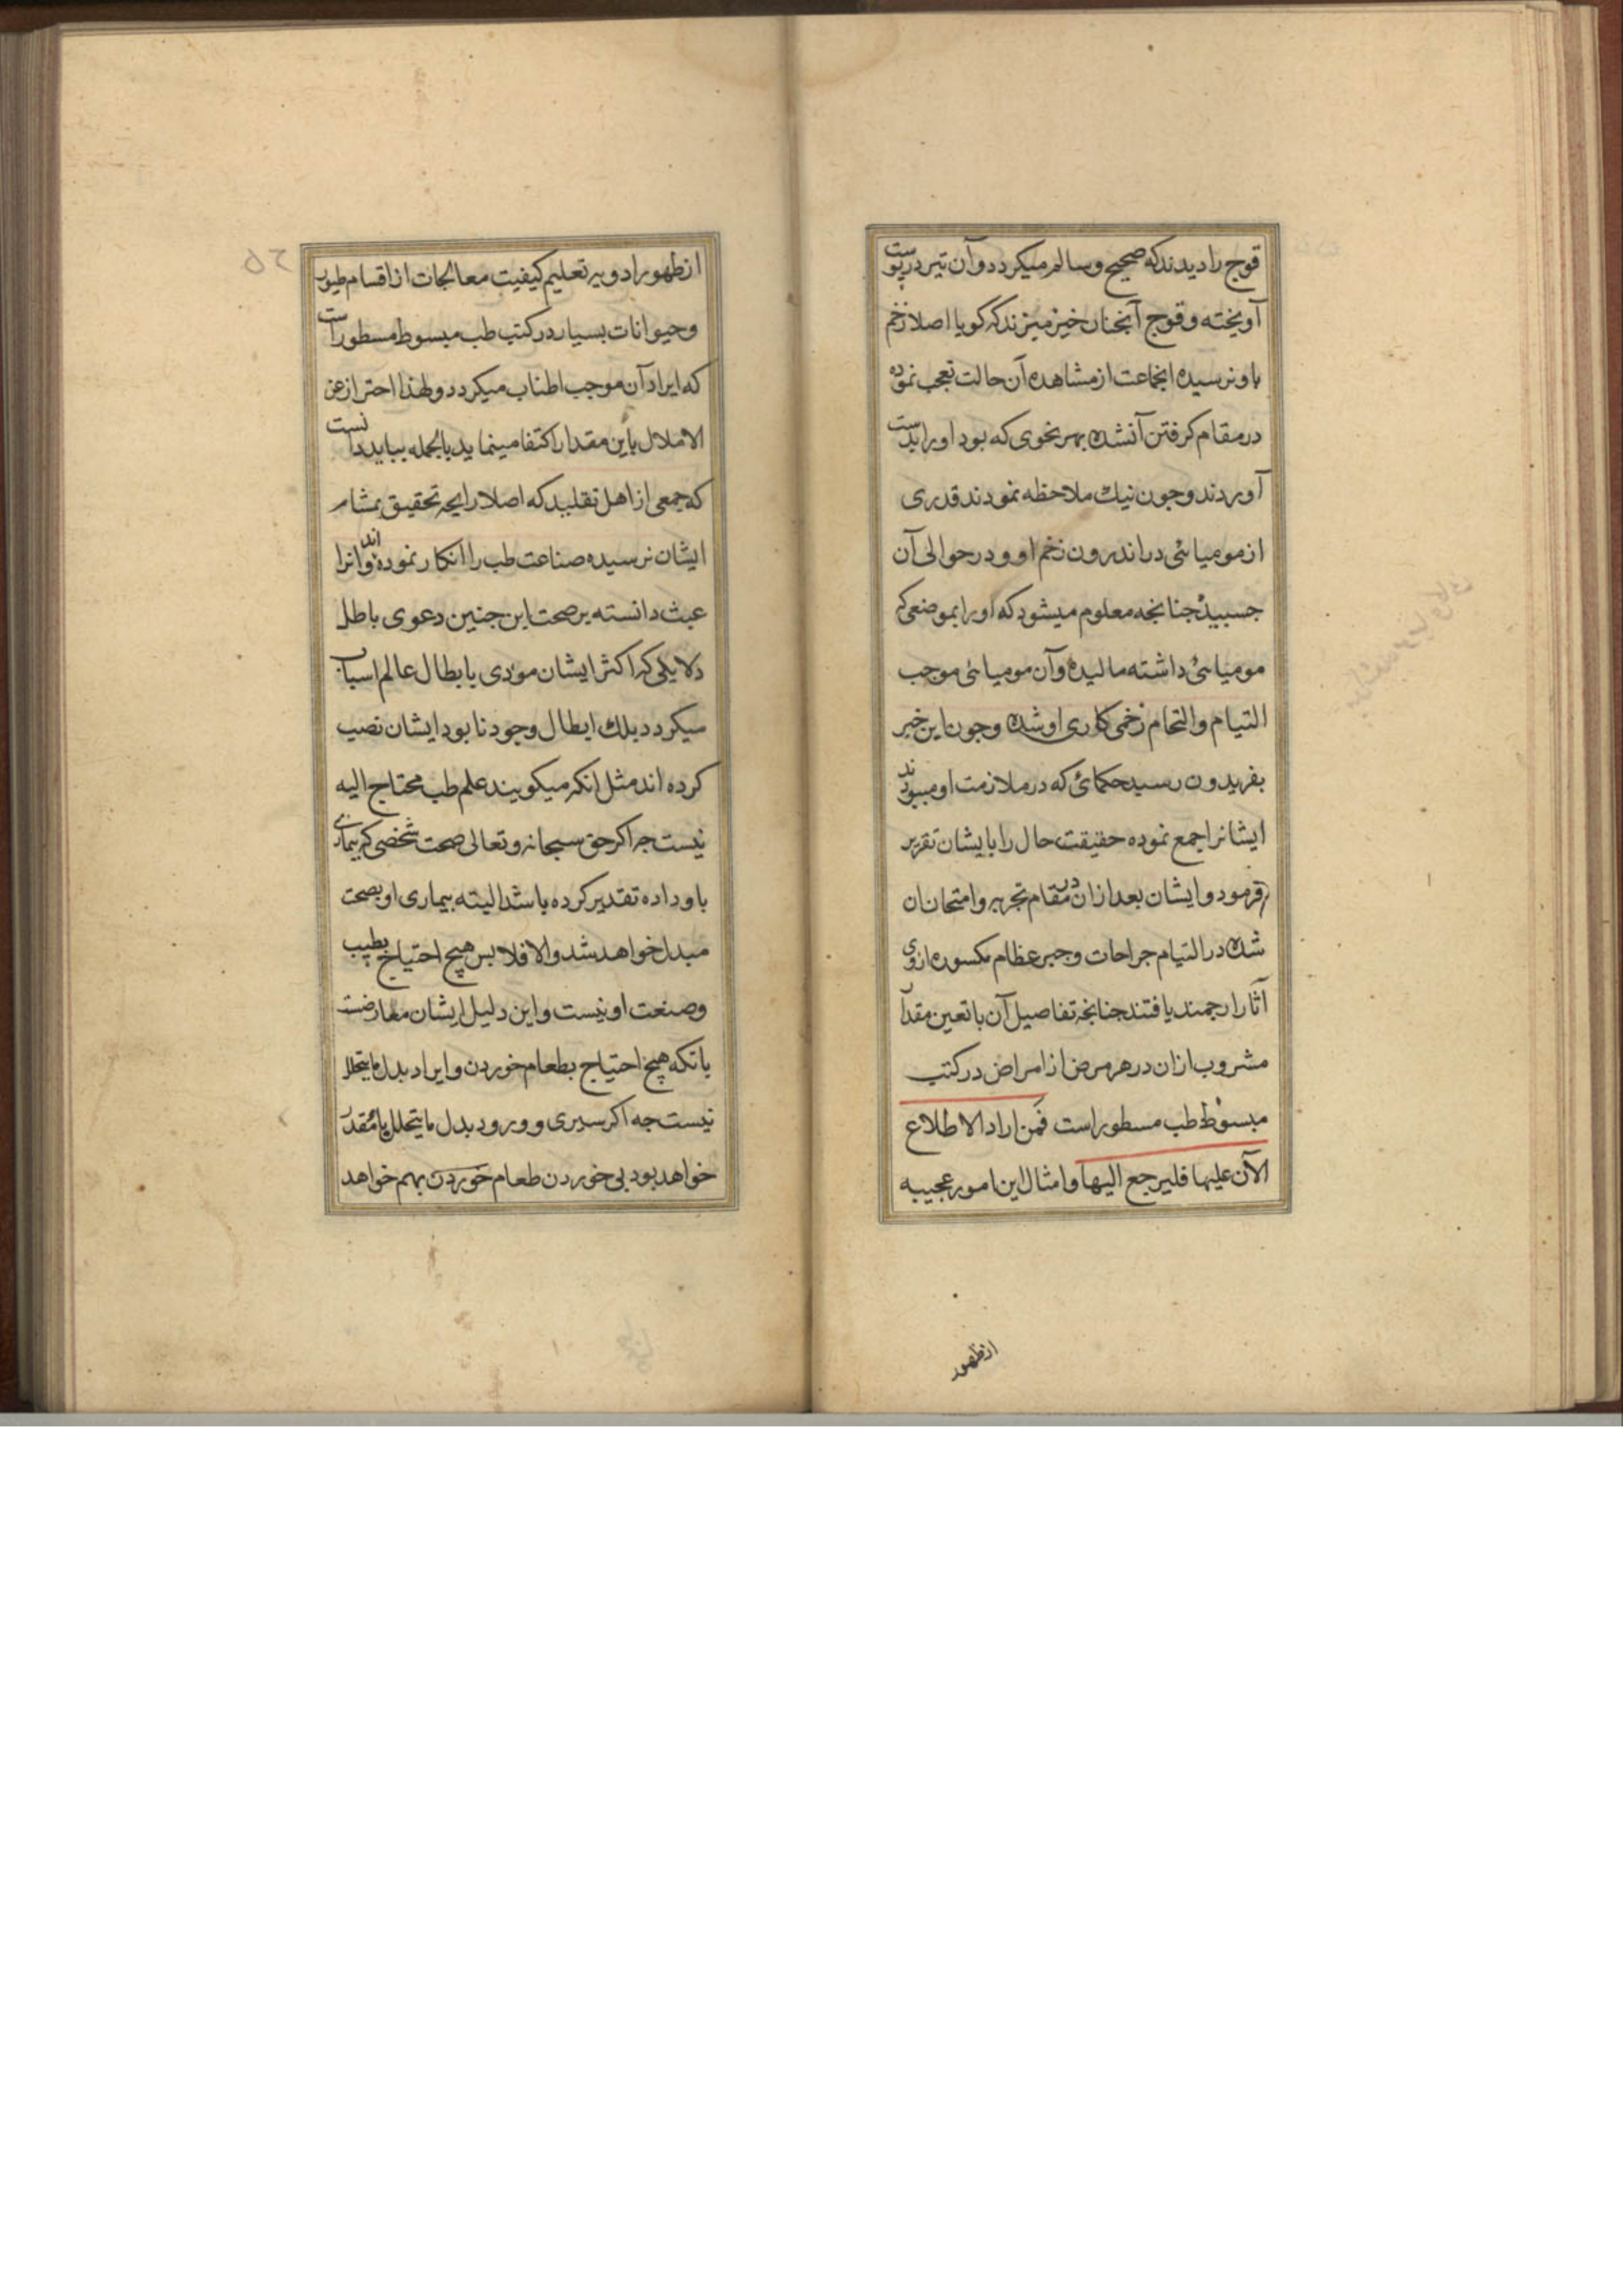 قوج را دیدند که صحیح و سالم میکردد و آن تیر در پوست
آویخته و قوج آنجنان خیز میزند که کویا اصلا زخم
باو نرسیده انجماعت از مشاهده آن حالت تعجب نموده
در مقام کرفتن آنشده بهر نحوی که بود او را بدست
آوردند و جون نیك ملاحظه نمودند قدری
از مومیائی در اندرون زخم او و در حوالی آن
جسبیده جنانجه معلوم میشود که او را بموضعی که
مومیائی داشته مالیده و آن مومیائی موجب
التیام و التحام زخمی کاری او شده و جون این خبر
بفریدون رسید حکمائی که در ملازمت او میبودند
ایشانرا جمع نموده حقیقت حال را بایشان تقریر
فرمود و ایشان بعد ازان در مقام تجربه و امتحان ان
شده در التیام جراحات و جبر عظام مکسوره ازوی
آثار ارجمند یافتند جنانجه تفاصیل آن با تعین مقدار
مشروب ازان در هر مرض از امراض در کتب
مبسوط طب مسطور است فمن اراد الاطلاع
الآن علیها فلیرجع الیها و امثال این امور عجیبه
از ظهور
از ظهور ادویه تعلیم کیفیت معالجات از اقسام طیور
و حیوانات بسیار در کتب طب مبسوط مسطور است
که ایراد آن موجب اطناب میکردد و لهذا احتراز عن
الاملال باین مقدار اکتفا مینماید بالجمله بباید دانست
که جمعی از اهل تقلید که اصلا رایحه تحقیق بمشام
ایشان نرسیده صناعت طب را انکار نموده اند و انرا
عبث دانسته بر صحت این جنین دعوی باطل
دلایلی که اکثر ایشان مودی بابطال عالم اسباب
میکردد بلك ابطال وجود نابود ایشان نصب
کرده اند مثل انکه میکویند علم طب محتاج الیه
نیست جه اکر حق سبحانه و تعالی صحت شخصی که بیماری
باو داده تقدیر کرده باشد البته بیماری او بصحت
مبدل خواهد شد و الا فلا بس هیج احتیاج بطبیب
و صنعت او نیست و این دلیل ایشان معارضست
بانکه هیج احتیاج بطعام خوردن و ایراد بدل ما یتحلل
نیست جه اکر سیری و ورود بدل ما یتحلل بما مقدر
خواهد بود بی خوردن طعام خوردن بهم خواهد